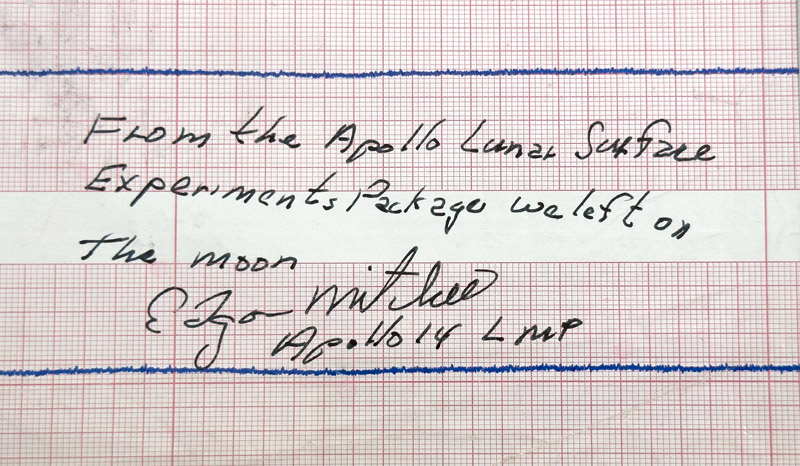 From the Apollo Lunar Surface
Experiments Package we left on
the moon
Edgar Mitchell
Apollo 14 LMP